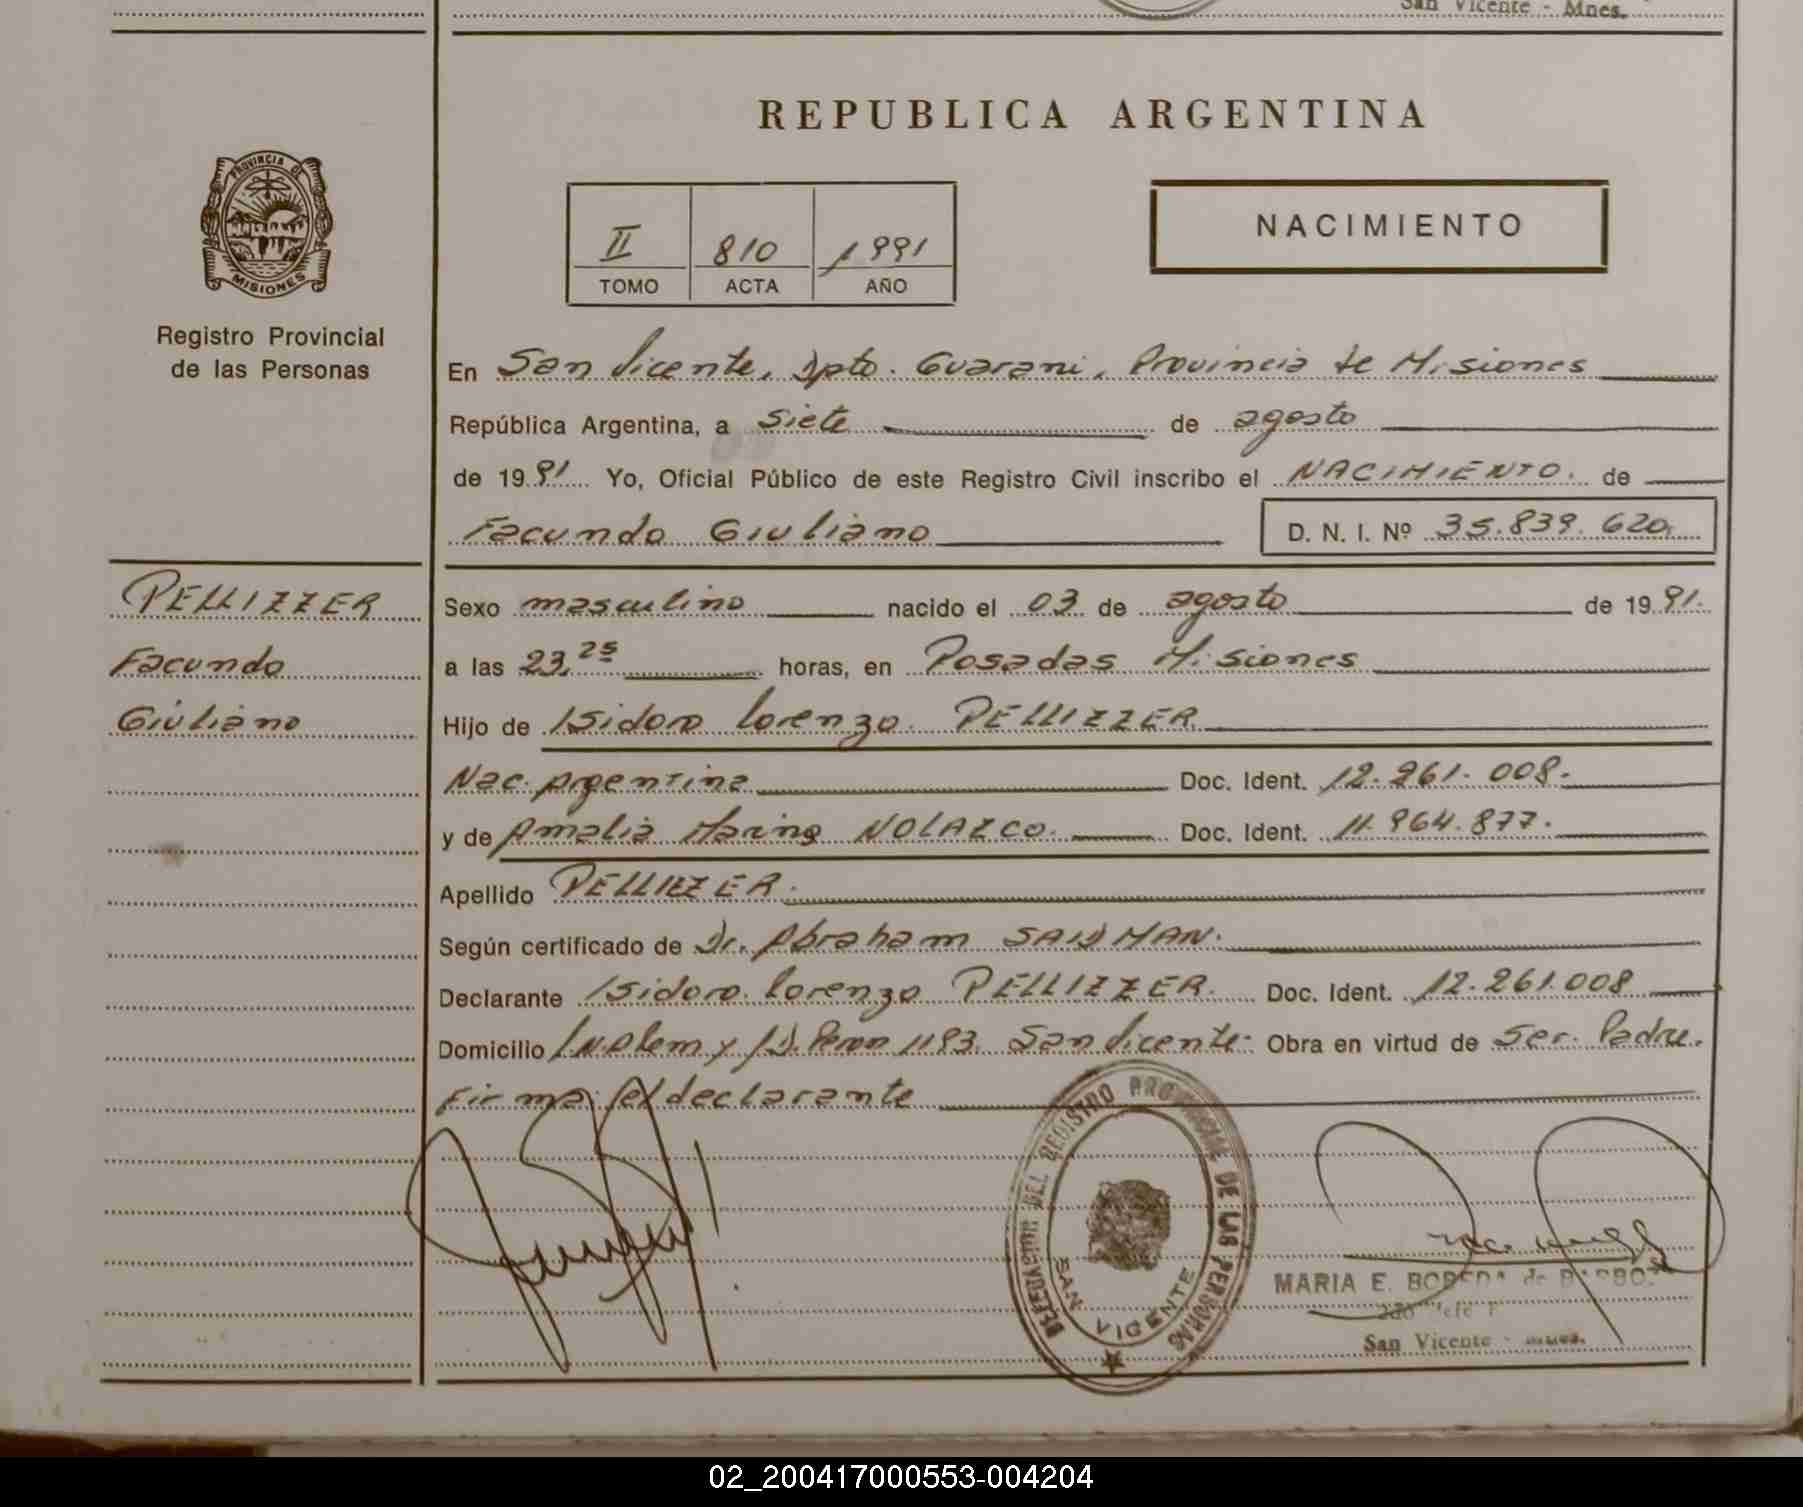 San Vicente - Mnes.
REPUBLICA ARGENTINA
PROVINCIA DE
MISIONES
Registro Provincial
de las Personas
II 810 1991
TOMO ACTA AÑO
NACIMIENTO
En San Vicente, Dpto. Guarani, Provincia de Misiones
República Argentina, a siete de agosto
de 1991 Yo, Oficial Público de este Registro Civil inscribo el NACIMIENTO. de
Facundo Giuliano D. N. I. Nº 35.839.620.
PELLIZZER
Facundo
Giuliano
Sexo masculino nacido el 03 de agosto de 1991.
a las 23,25 horas, en Posadas Misiones
Hijo de Isidoro Lorenzo. PELLIZZER
Nac. Argentina Doc. Ident. 12.261.008.
y de Amalia Marina NOLAZCO. Doc. Ident. 11.964.877.
Apellido PELLIZZER.
Según certificado de Dr. Abraham SAIDMAN.
Declarante Isidoro Lorenzo PELLIZZER. Doc. Ident. 12.261.008
Domicilio L.N.Alem y J.D.Peron 1193. San Vicente. Obra en virtud de Ser. Padre.
Firma el declarante
DELEGACION DEL REGISTRO PROVINCIAL DE LAS PERSONAS
SAN VICENTE
MARIA E. de
San Vicente - Mnes.
02_200417000553-004204